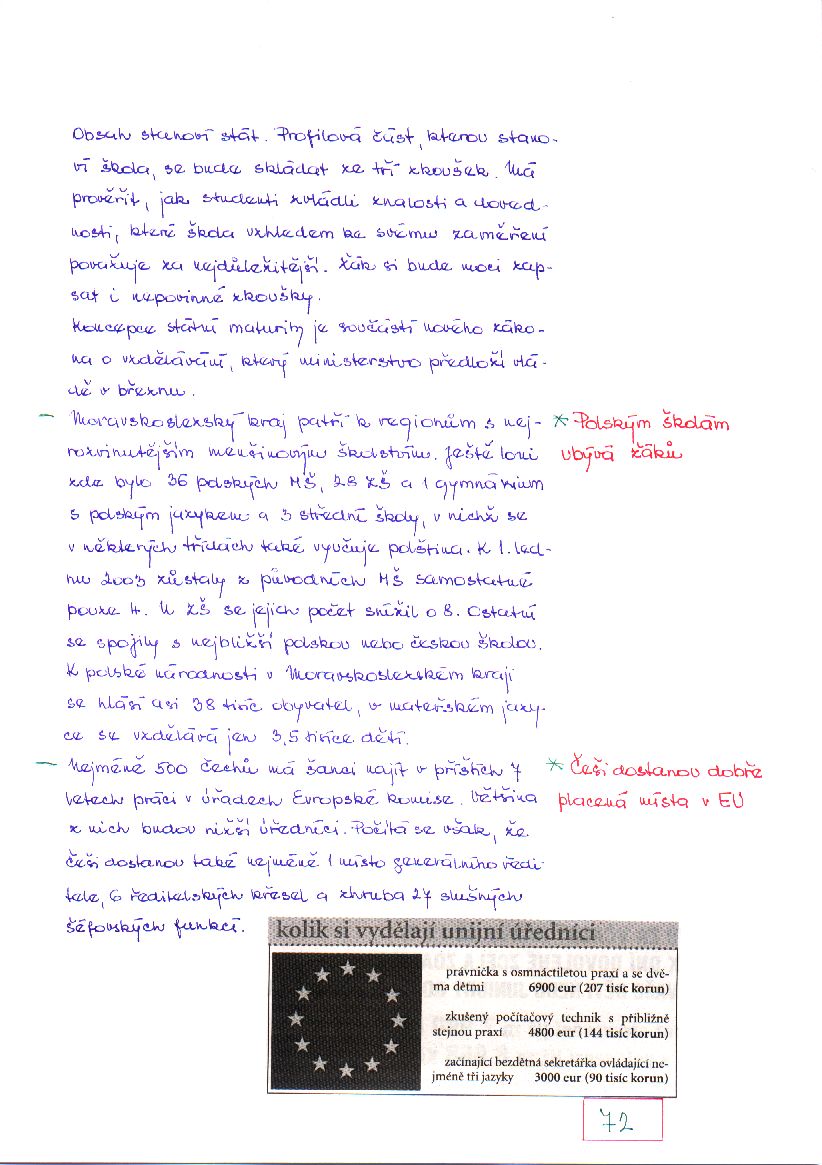 Obsah stanoví stát. Profilová část, kterou stano-
ví škola, se bude skládat ze tří zkoušek. Má
prověřit, jak studenti zvládli znalosti a doved-
nosti, které škola vzhledem ke svému zaměření
považuje za nejdůležitější. Žák si bude moci zap-
sat i nepovinné zkoušky.
Koncepce státní maturity je součástí nového záko-
na o vzdělávání, který ministerstvo předloží vlá-
dě v březnu.
– Moravskoslezský kraj patří k regionům s nej-
rozvinutějším menšinovým školstvím. Ještě loni
zde bylo 36 polských MŠ, 28 ZŠ a 1 gymnázium
s polským jazykem a 3 střední školy, v nichž se
v některých třídách také vyučuje polština. K 1. led-
nu 2003 zůstaly z původních MŠ samostatné
pouze 4. U ZŠ se jejich počet snížil o 8. Ostatní
se spojily s nejbližší polskou nebo českou školou.
K polské národnosti v Moravskoslezském kraji
se hlásí asi 38 tisíc obyvatel, v mateřském jazy-
ce se vzdělává jen 3,5 tisíce dětí.
* Polským školám
ubývá žáků
– Nejméně 500 čechů má šanci najít v příštích 7
letech práci v úřadech Evropské komise. Většina
z nich budou nižší úředníci. Počítá se však, že
češi dostanou také nejméně 1 místo generálního ředi
tele, 6 ředitelských křesel a zhruba 27 slušných
šéfovských funkcí.
* Češi dostanou dobře
placená místa v EU
kolik si vydělají unijní úředníci
právnička s osmnáctiletou praxí a se dvě-
ma dětmi 6900 eur (207 tisíc korun)
zkušený počítačový technik s přibližně
stejnou praxí 4800 eur (144 tisíc korun)
začínající bezdětná sekretářka ovládající ne-
jméně tři jazyky 3000 eur (90 tisíc korun)
72